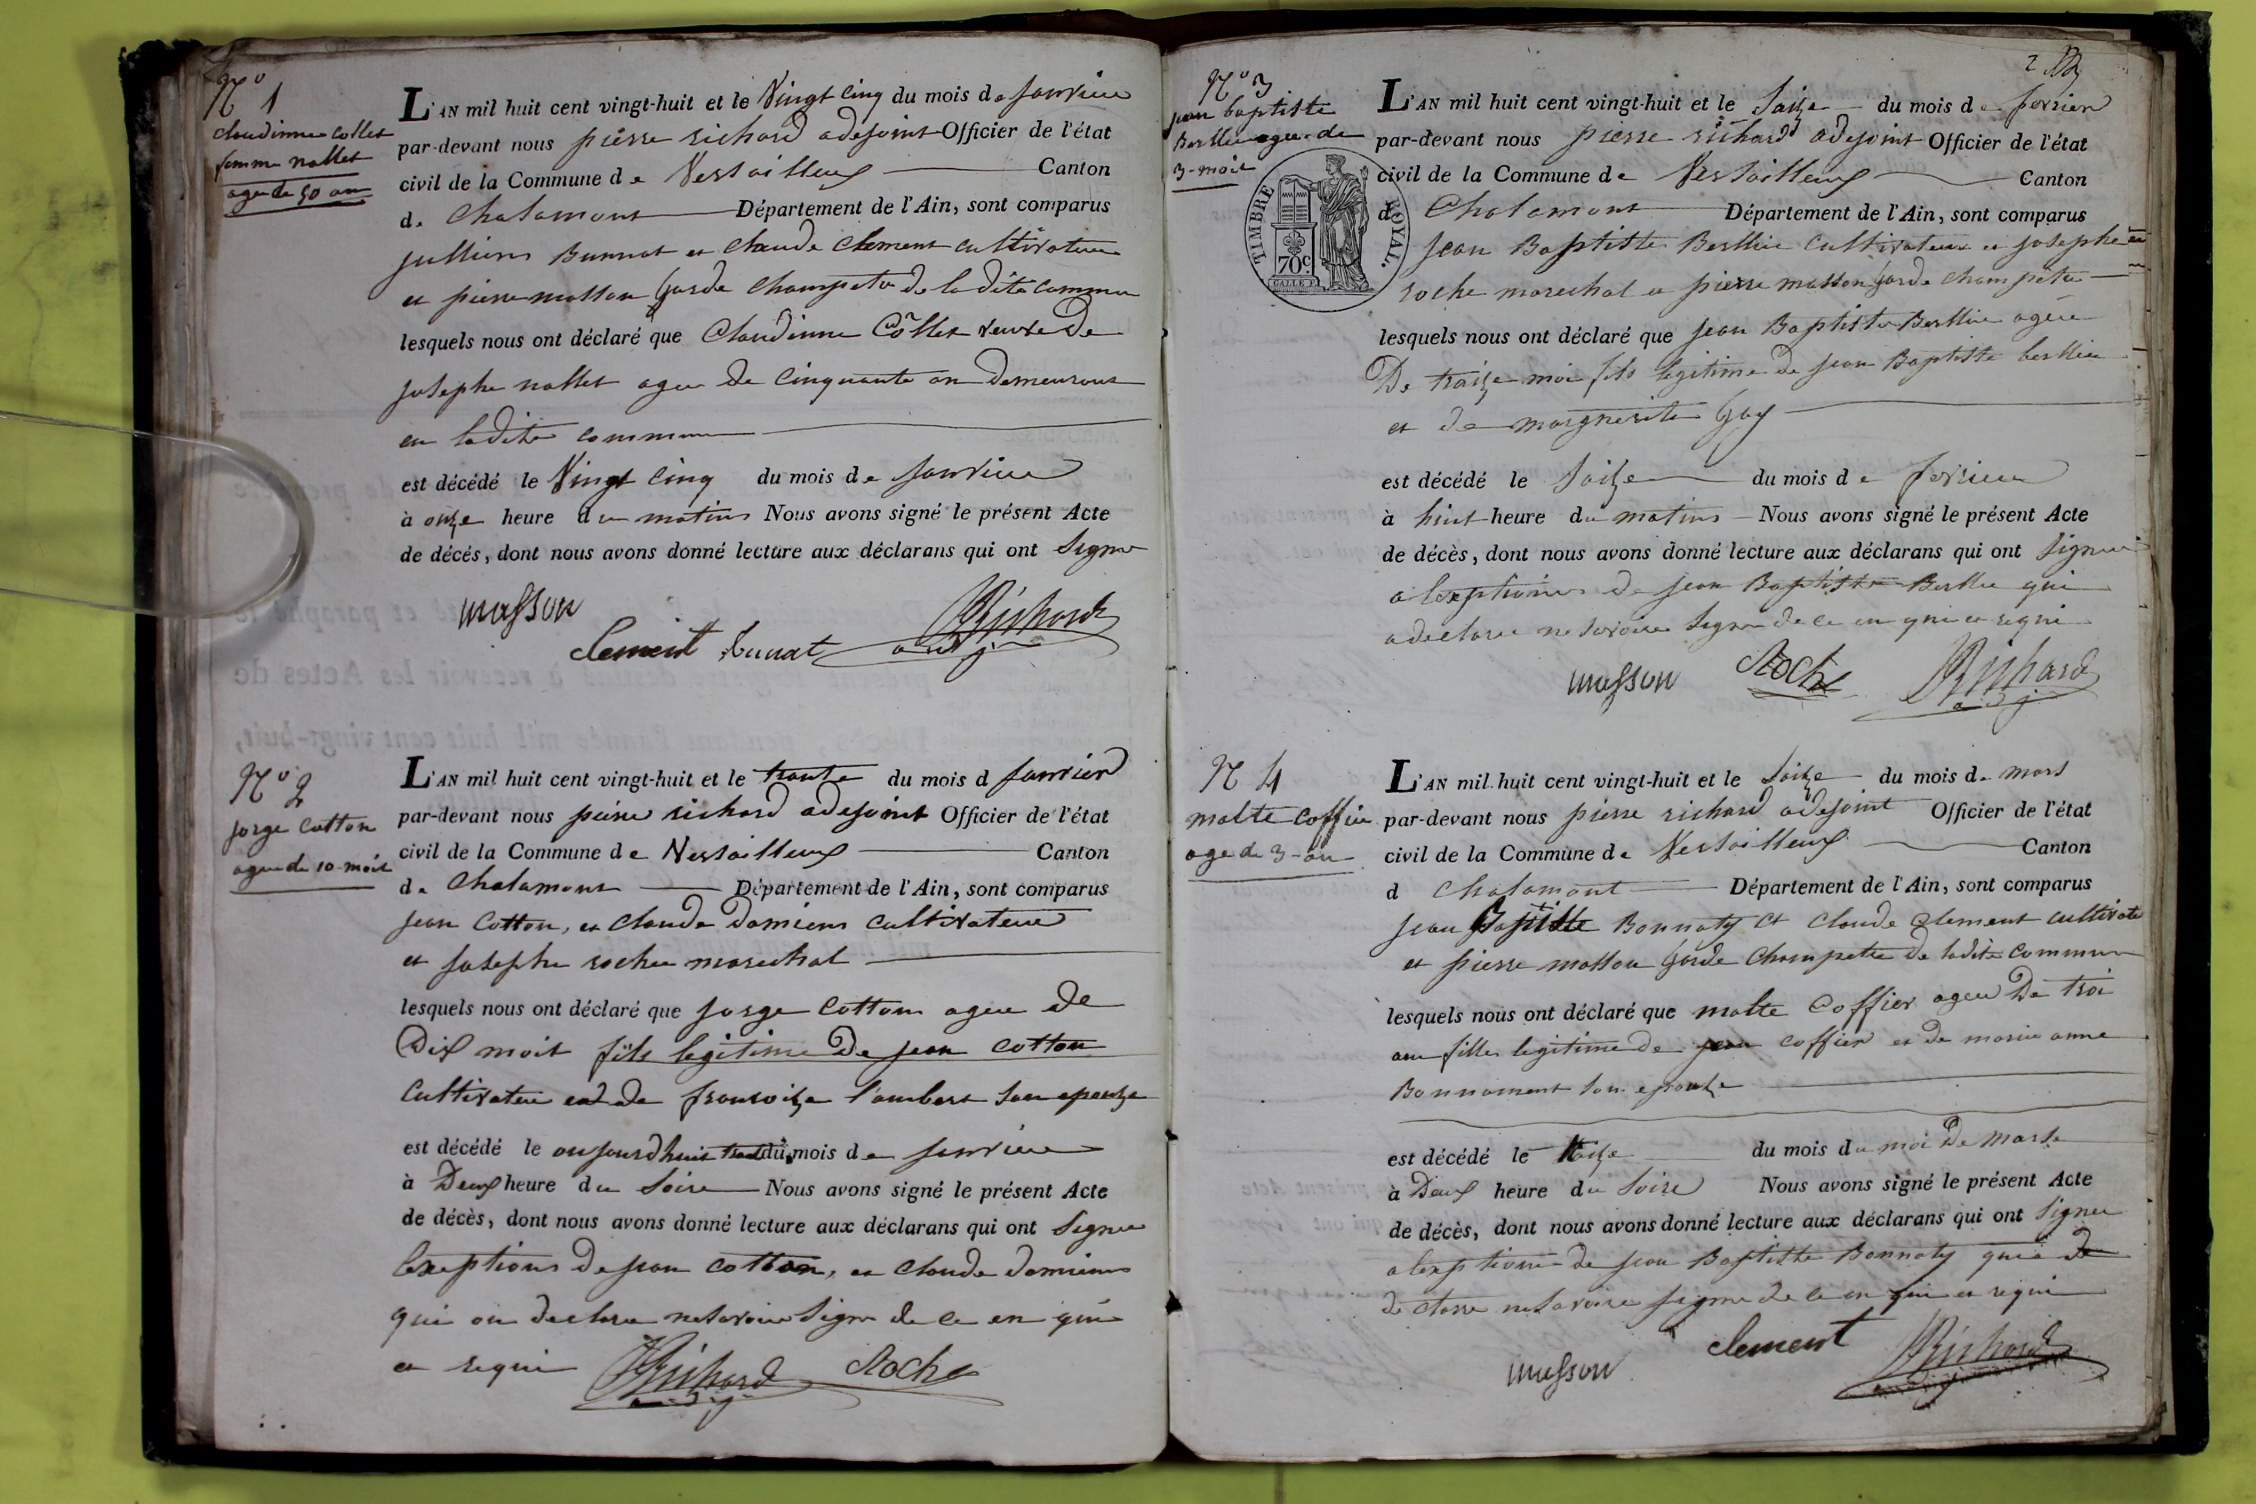 No 1
claudinne Collet
femme nallet
agee de 50 an
L'AN mil huit cent vingt-huit et le Vingt Cinq du mois de janvier
par-devant nous pierre richard adejoint Officier de l'état
civil de la Commune de Versailleux Canton
de Chalamont Département de l'Ain, sont comparus
julliens Bunnat et Claude Clement cultivateur
et pierre masson garde Champetre de la dite Commune
lesquels nous ont déclaré que Claudinne Collet veuve De
josephe nallet agee de Cinquante an Demeurant
en ladite commune
est décédé le Vingt Cinq du mois de janvier
à onze heure du matins Nous avons signé le présent Acte
de décés, dont nous avons donné lecture aux déclarans qui ont Signé
masson
Clement bunat Richard
adj
No 2
jorge Cotton
agee de 10 mois
L'AN mil huit cent vingt-huit et le trante du mois d janvier
par-devant nous pierre richard adejoint Officier de l'état
civil de la Commune de Versailleux Canton
de Chalamont Département de l'Ain, sont comparus
jean Cotton, et claude Damiens Cultivateur
et josephe roche marechal
lesquels nous ont déclaré que jorge Cotton agee de
Dix moit fils legitime De jean Cotton
Cultivateur et de francoize lambert son epouze
est décédé le aujourdhuit du mois de janvier
à Deux heure du Soire Nous avons signé le présent Acte
de décès, dont nous avons donné lecture aux déclarans qui ont Signee
lexeptions De jean Cotton, et Claude damiens
qui on declare nesavoire Signe de ce en qui
et requi Richard Roche
adj
2
No 3
jean baptiste
Berllie agee de
3-mois
TIMBRE ROYAL.
70c
L'AN mil huit cent vingt-huit et le Saize du mois de fevrier
par-devant nous pierre richard adejoint Officier de l'état
civil de la Commune de Versailleux Canton
d Chalamont Département de l'Ain, sont comparus
jean Baptiste Berllie Cultivateur et josephe
roche marechal et pierre masson garde Champetre
lesquels nous ont déclaré que jean Baptiste Berllie agee
De traize moi fils legitime de jean Baptiste berllie
et de margrerite Gay
est décédé le Saize du mois de fevrier
à huit heure du matins Nous avons signé le présent Acte
de décès, dont nous avons donné lecture aux déclarans qui ont Signee
a lexeptions de jean Baptiste Berllie qui
adeclaree ne savoire Signe de ce en qui et requi
masson Roche Richard
adj
N 4
malte Coffier
age de 3-an
L'AN mil huit cent vingt-huit et le Saize du mois de mars
par-devant nous pierre richard adejoint Officier de l'état
civil de la Commune de Versailleux Canton
d Chalamont Département de l'Ain, sont comparus
jean Baptiste Bonnaty et Claude Clement cultivate
et pierre masson garde Champetre De ladite commune
lesquels nous ont déclaré que malte Coffier agee De troi
ans filles legitime de jean Coffier et de marie anne
Bonnament son epouze
est décédé le du mois du moi De marse
à Deux heure du Soire Nous avons signé le présent Acte
de décès, dont nous avons donné lecture aux déclarans qui ont Signee
a lexeptions de jean Baptiste Bonnaty qui a de
de clare ne savoire signe de ce en qui et requi
masson Clement Richard